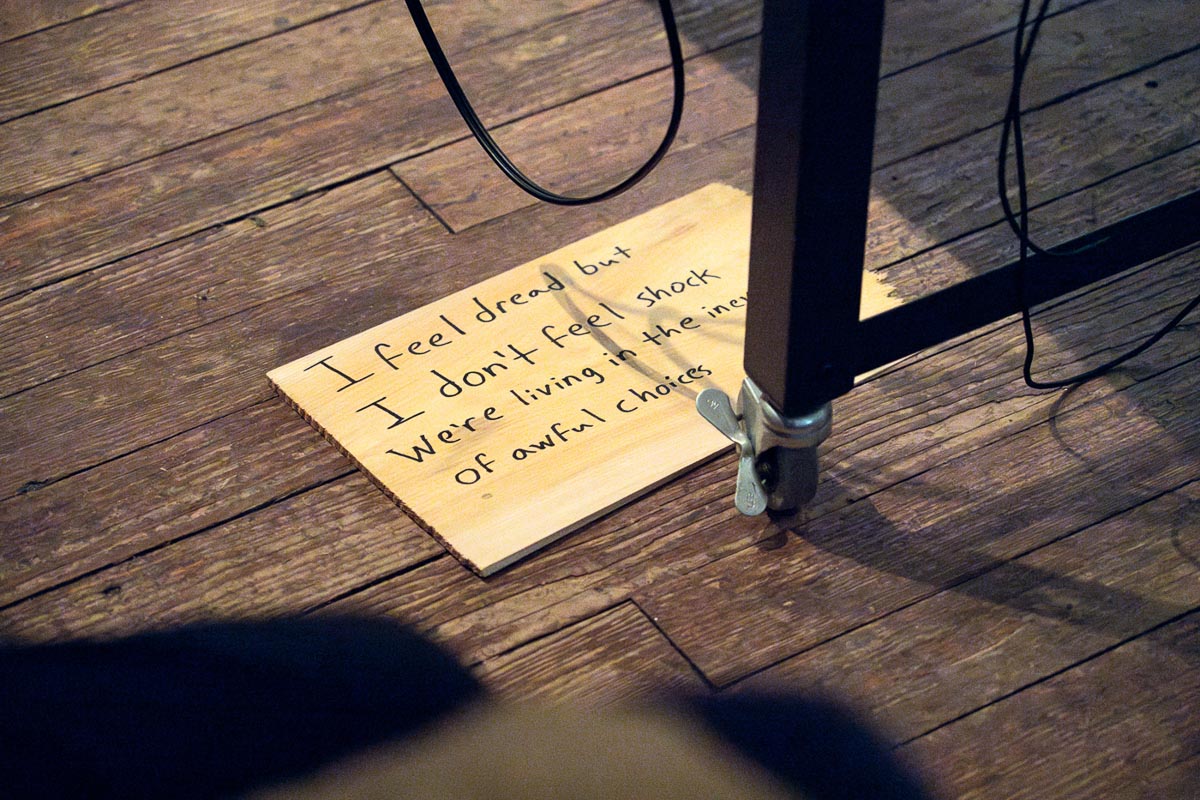 I feel dread but
I don't feel shock
We're living in the
of awful choices